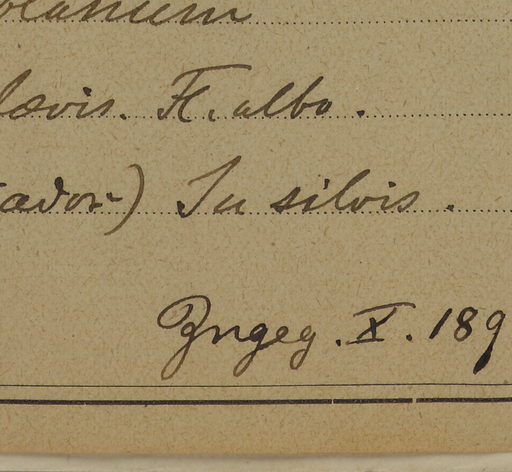 olanum
lævis. Fl. albo.
ador) In silvis.
X. 189